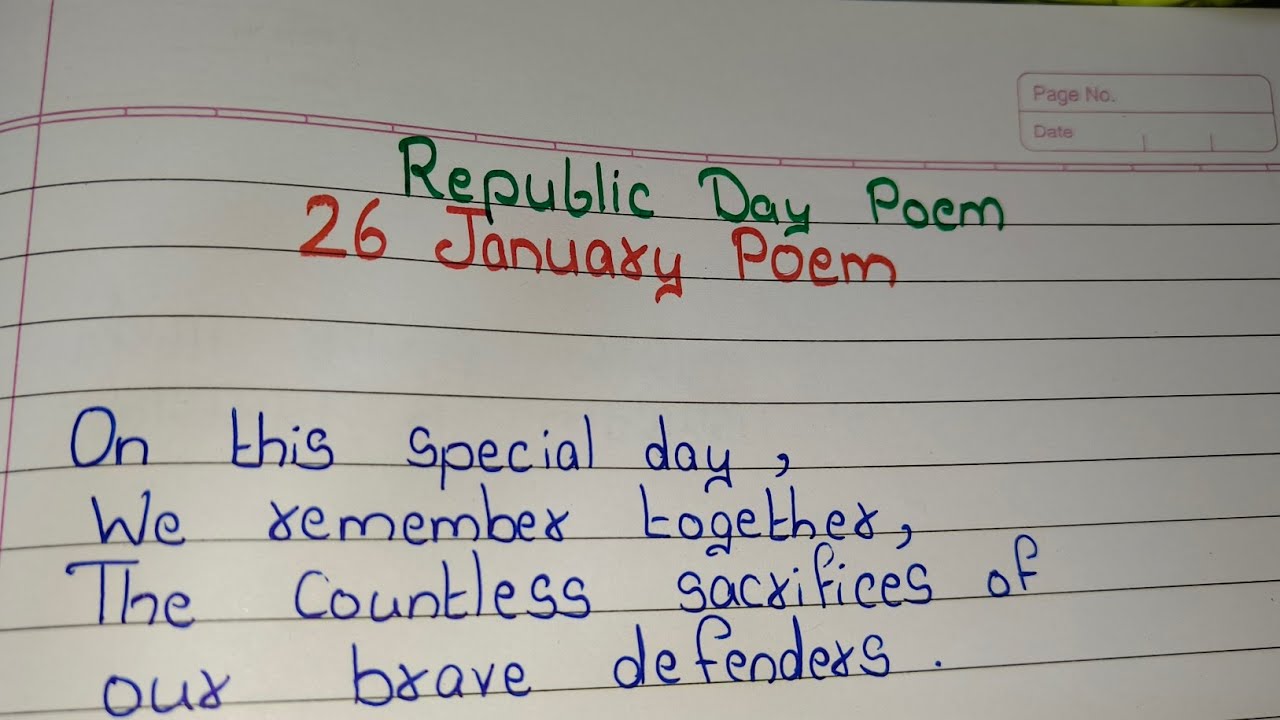 Page No.
Date
Republic Day Poem
26 January Poem
On this special day,
We remember together,
The Countless sacrifices of
our brave defenders.